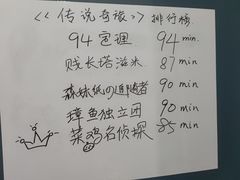 <<传说奇旅>> 排行榜
94定理 94 min.
贱长塔滋米 87 min
森林纸の追随者 90 min
璋鱼独立团 90 min
菜鸡名侦探 85 min